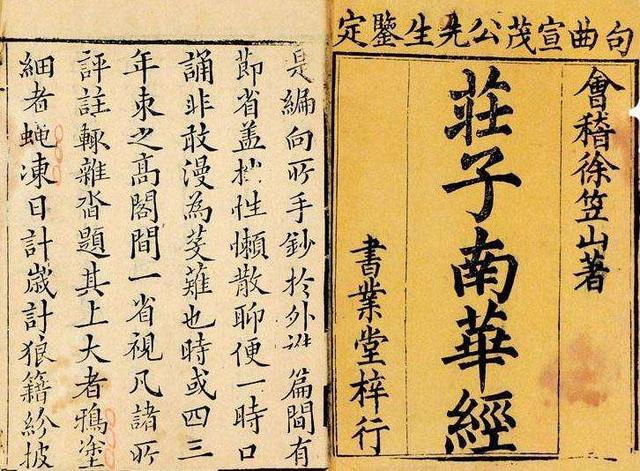 句曲宣茂公先生鑒定
會稽徐笠山著
莊子南華經
書業堂梓行
是編向所手鈔於外篇間有
節省盖抄性懶散聊便一時口
誦非敢漫為芟薙也時或四三
年束之高閣間一省視凡諸所
評註輒雜沓題其上大者鴉塗
細者蝇凍日計歲計狼籍紛披